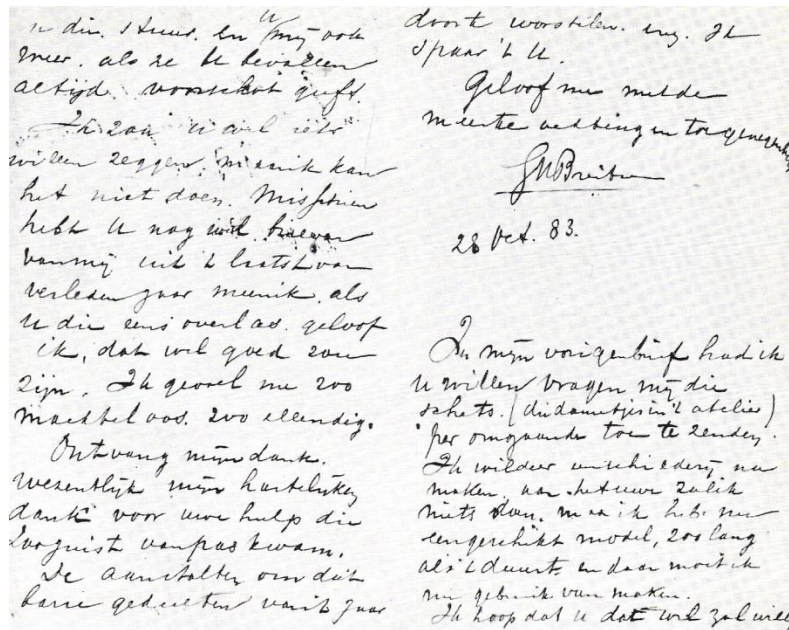 u die stuur. en u mij ook
meer. als ze U bevallen
altijd voorschot geeft.
Ik zou u wel iets
willen zeggen. maar ik kan
het niet doen. Misschien
hebt U nog wel brieven
van mij uit 't laatst van
verleden jaar meen ik. als
u die eens overlas. geloof
ik, dat wel goed zou
zijn. Ik gevoel me zoo
machteloos. zoo ellendig.
Ontvang mijn dank.
wezentlijk mijn hartelijken
dank voor uwe hulp die
zoo juist van pas kwam.
De aanstalten om dit
barre gedeelten van 't jaar
door te worstelen. enz. Ik
spaar 't U.
Geloof me met de
meeste toegenegenheid
GHBreitner
28 Oct. 83.
In mijn vorigen brief had ik
u willen vragen mij die
schets. (die dametjes in 't atelier)
per omgaande toe te zenden.
Ik wilde er een schilderij naar
maken, aan het uwe zal ik
niets doen. maar ik heb nu
een geschikt model, zoo lang
als 't duurt. en daar moet ik
nu gebruik van maken.
Ik hoop dat u dat wel zal